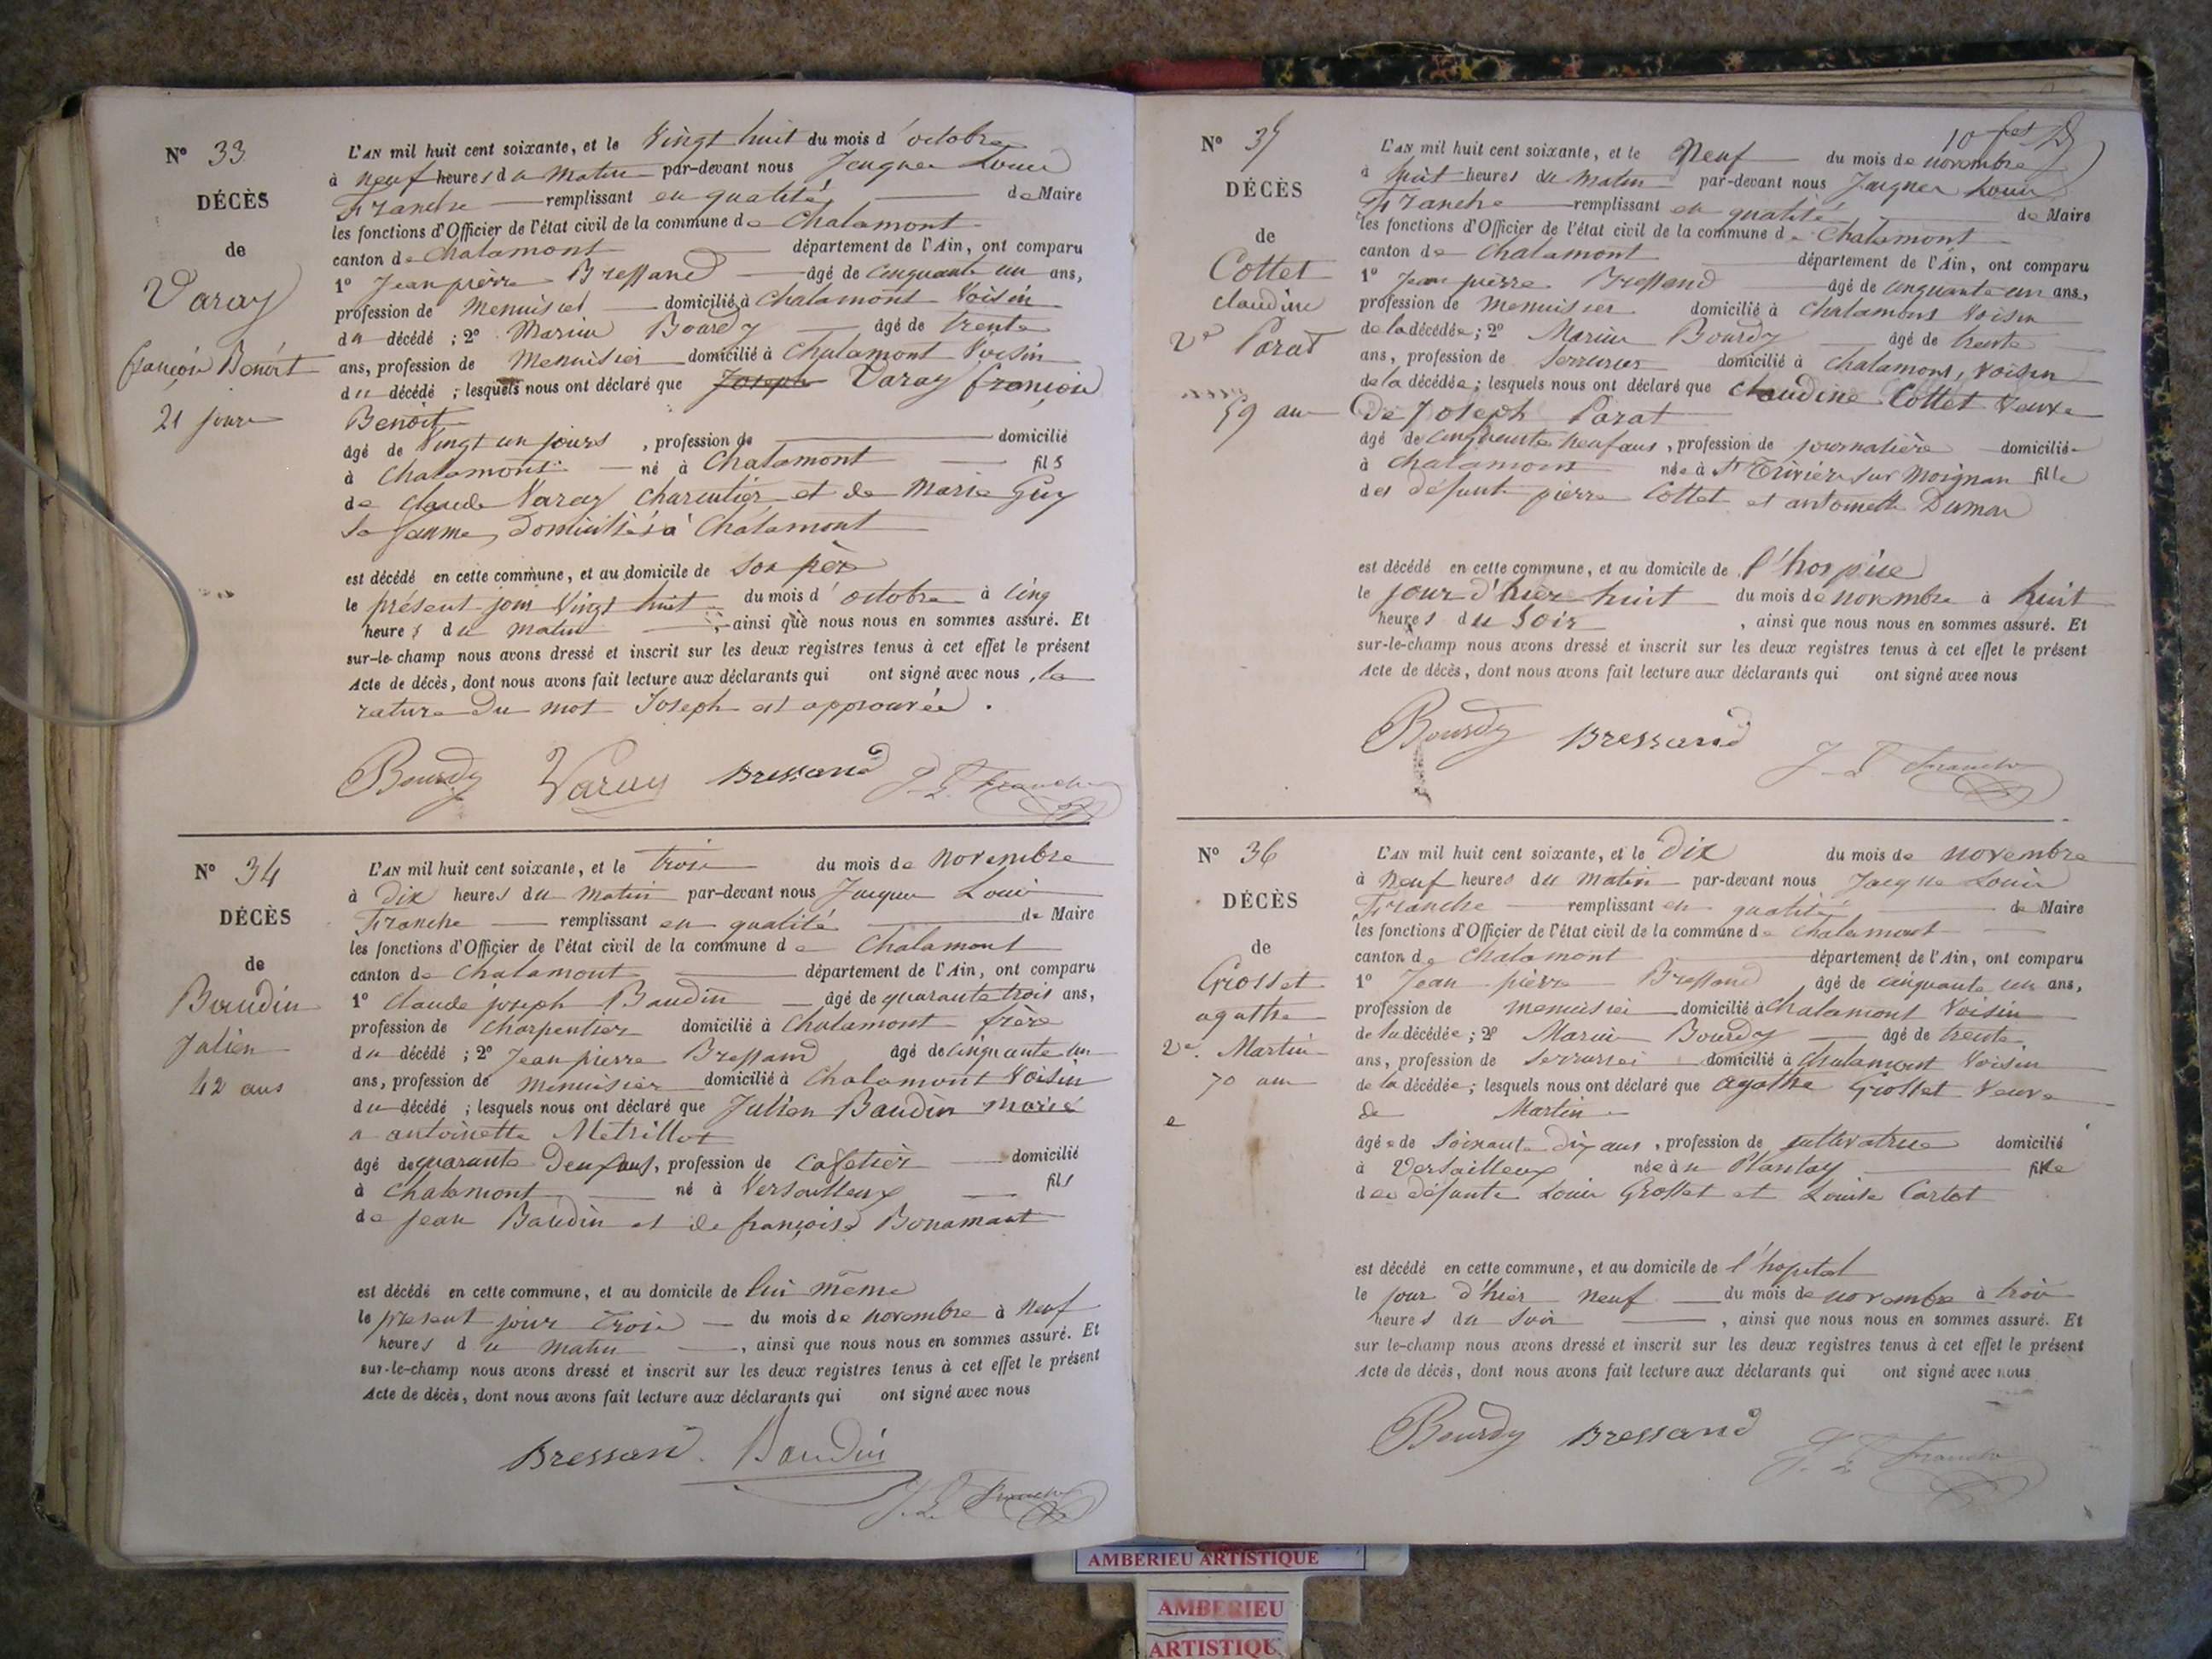 N° 33
DÉCÈS
de
Varay
françois Benoit
21 jours
L'AN mil huit cent soixante, et le Vingt huit du mois d'octobre
à neuf heures du matin par-devant nous Jacques Louis
Franche remplissant en qualité de Maire
les fonctions d'Officier de l'état civil de la commune de Chalamont
canton de Chalamont département de l'Ain, ont comparu
1° Jean pierre Bressand âgé de cinquante un ans,
profession de menuisier domicilié à Chalamont Voisin
du décédé ; 2° Marius Bourdy âgé de trente
ans, profession de Menuisier domicilié à Chalamont Voisin
du décédé ; lesquels nous ont déclaré que Joseph Varay françois
Benoit
âgé de Vingt un jours , profession de domicilié
à Chalamont né à Chalamont fils
de claude Varay charcutier et de Marie Guy
sa femme, Domiciliés à Chalamont
est décédé en cette commune, et au domicile de son père
le présent jour Vingt huit du mois d'octobre à cinq
heures du matin , ainsi que nous nous en sommes assuré. Et
sur-le-champ nous avons dressé et inscrit sur les deux registres tenus à cet effet le présent
Acte de décès, dont nous avons fait lecture aux déclarants qui ont signé avec nous, la
rature du mot Joseph est approuvée.
Bourdy Varay Bressand J. L. Franche
N° 34
DÉCÈS
de
Baudin
Julien
42 ans
L'AN mil huit cent soixante, et le trois du mois de novembre
à Dix heures du matin par-devant nous Jacques Louis
Franche remplissant en qualité de Maire
les fonctions d'Officier de l'état civil de la commune de Chalamont
canton de Chalamont département de l'Ain, ont comparu
1° Claude joseph Baudin âgé de quarante trois ans,
profession de Charpentier domicilié à Chalamont frère
du décédé ; 2° Jean pierre Bressand âgé de cinquante un
ans, profession de menuisier domicilié à Chalamont Voisin
du décédé ; lesquels nous ont déclaré que Julien Baudin marié
a antoinette Metrillot
âgé de quarante Deux ans, profession de Cafetier domicilié
à Chalamont né à Versailleux fils
de jean Baudin et de françoise Bonamant
est décédé en cette commune, et au domicile de lui même
le présent jour trois du mois de novembre à neuf
heures du matin , ainsi que nous nous en sommes assuré. Et
sur-le-champ nous avons dressé et inscrit sur les deux registres tenus à cet effet le présent
Acte de décès, dont nous avons fait lecture aux déclarants qui ont signé avec nous
Bressand. Baudin
J. L. Franche
N° 35
DÉCÈS
de
Cottet
claudine
Ve Parat
59 ans
L'AN mil huit cent soixante, et le Neuf du mois de novembre
à huit heures du matin par-devant nous Jacques Louis
Franche remplissant en qualité de Maire
les fonctions d'Officier de l'état civil de la commune de Chalamont
canton de Chalamont département de l'Ain, ont comparu
1° Jean pierre Bressand âgé de cinquante un ans,
profession de menuisier domicilié à Chalamont Voisin
de la décédée ; 2° Marius Bourdy âgé de trente
ans, profession de serrurier domicilié à Chalamont, Voisin
de la décédée ; lesquels nous ont déclaré que Claudine Cottet Veuve
De Joseph Parat
âgé de cinquante neuf ans, profession de journalière domiciliée
à Chalamont née à St Trivier sur Moignan fille
des défunts pierre Cottet et antoinette Dumas
est décédé en cette commune, et au domicile de l'hospice
le jour d'hier huit du mois de novembre à huit
heures du Soir , ainsi que nous nous en sommes assuré. Et
sur-le-champ nous avons dressé et inscrit sur les deux registres tenus à cet effet le présent
Acte de décès, dont nous avons fait lecture aux déclarants qui ont signé avec nous
Bourdy Bressand
J. L. Franche
N° 36
DÉCÈS
de
Grosset
agathe
Ve. Martin
70 ans
L'AN mil huit cent soixante, et le Dix du mois de novembre
à neuf heures du matin par-devant nous Jacques Louis
Franche remplissant en qualité de Maire
les fonctions d'Officier de l'état civil de la commune de Chalamont
canton de Chalamont département de l'Ain, ont comparu
1° Jean pierre Bressand âgé de cinquante un ans,
profession de menuisier domicilié à Chalamont Voisin
de la décédée ; 2° Marius Bourdy âgé de trente
ans, profession de serrurier domicilié à Chalamont Voisin
de la décédée ; lesquels nous ont déclaré que agathe Grosset Veuve
de Martin
âgée de soixante dix ans, profession de cultivatrice domicilié
à Versailleux née au Plantay fille
des défunts Louis Grosset et Louise Cartot
est décédé en cette commune, et au domicile de l'hopital
le jour d'hier neuf du mois de novembre à trois
heures du soir , ainsi que nous nous en sommes assuré. Et
sur le-champ nous avons dressé et inscrit sur les deux registres tenus à cet effet le présent
Acte de décès, dont nous avons fait lecture aux déclarants qui ont signé avec nous
Bourdy Bressand
J. L. Franche
AMBERIEU ARTISTIQUE
AMBERIEU
ARTISTIQUE